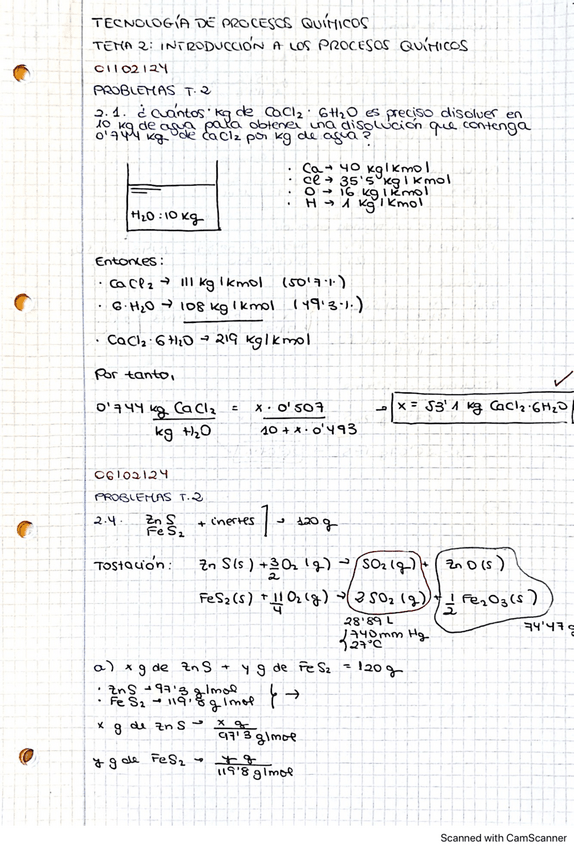 TECNOLOGÍA DE PROCESOS QUÍMICOS
TEMA 2: INTRODUCCIÓN A LOS PROCESOS QUÍMICOS
01/02/24
PROBLEMAS T.2
2.1. ¿Cuántos kg de CaCl₂·6H₂O es preciso disolver en
10 kg de agua para obtener una disolución que contenga
0'744 kg de CaCl₂ por kg de agua?
· Ca → 40 kg/kmol
· Cl → 35'5 kg/kmol
· O → 16 kg/kmol
· H → 1 kg/kmol
H₂O: 10 kg
Entonces:
· CaCl₂ → 111 kg/kmol (50'7%)
· 6·H₂O → 108 kg/kmol (49'3%)
· CaCl₂·6H₂O → 219 kg/kmol
Por tanto,
0'744 kg CaCl₂ / kg H₂O = x·0'507 / 10 + x·0'493 → x = 53'1 kg CaCl₂·6H₂O
06/02/24
PROBLEMAS T.2
2.4. ZnS FeS₂ + inertes ] → 120 g
Tostación: ZnS(s) + 3/2 O₂(g) → SO₂(g) + ZnO(s)
FeS₂(s) + 11/4 O₂(g) → 2SO₂(g) + 1/2 Fe₂O₃(s)
28'89 L
740 mm Hg
27°C
74'47 g
a) x g de ZnS + y g de FeS₂ = 120 g
· ZnS → 97'3 g/mol
· FeS₂ → 119'8 g/mol } →
x g de ZnS → x g / 97'3 g/mol
y g de FeS₂ → y g / 119'8 g/mol
Scanned with CamScanner